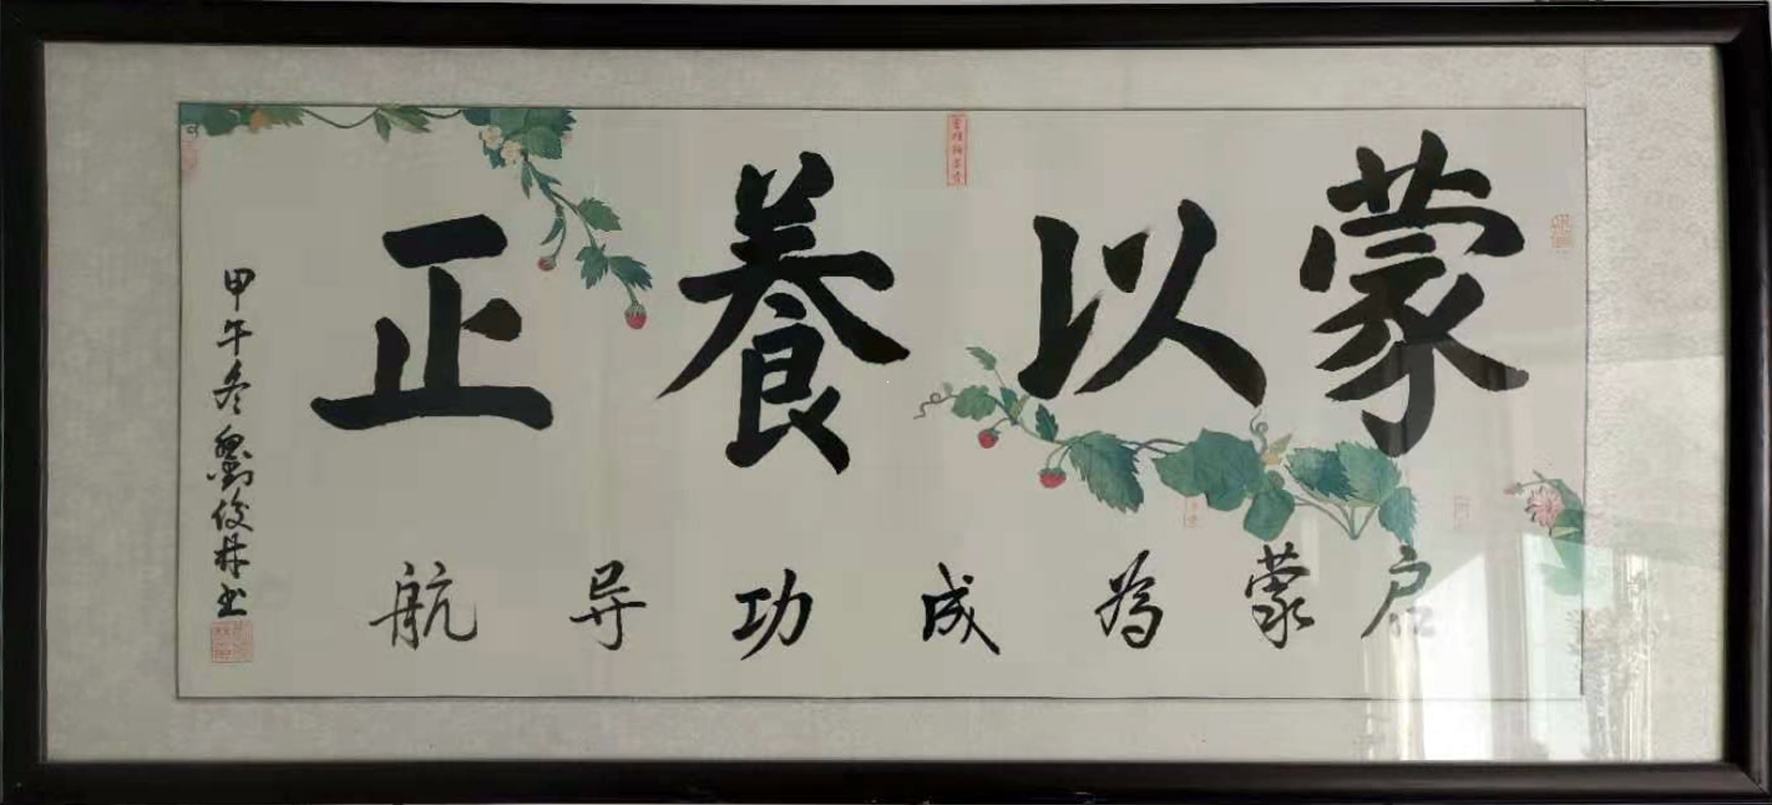 蒙以養正
启蒙為成功导航
甲午冬劉俊林书